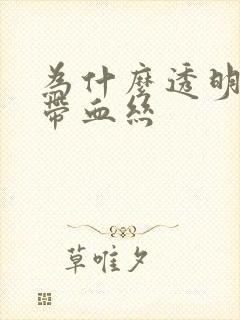 为什麼透明
帶血絲
草唯夕